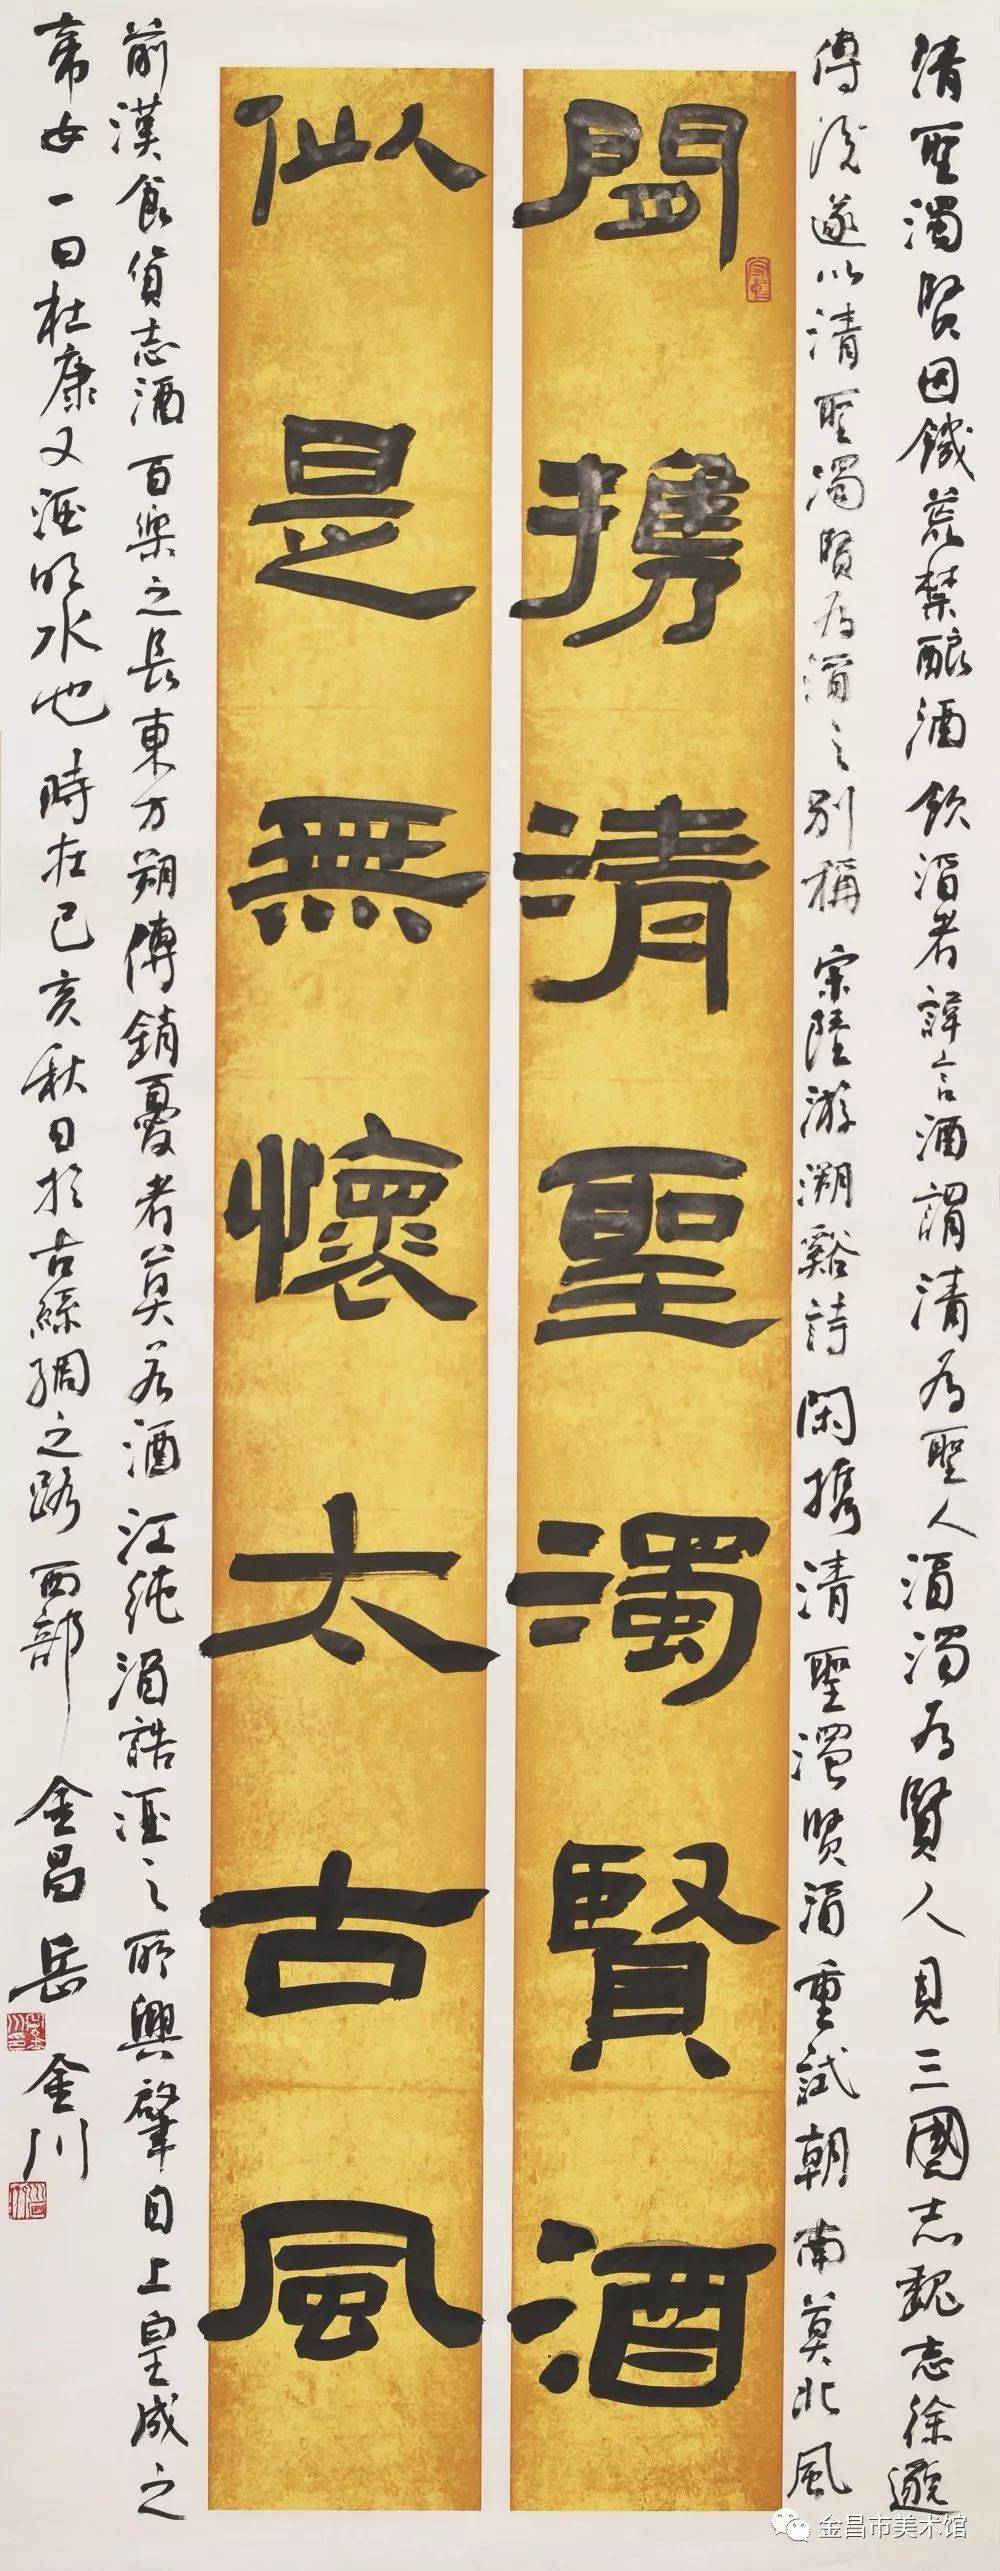 清聖濁賢因饑荒禁釀酒飲酒者諱言酒謂清為聖人酒濁為賢人見三國志魏志徐邈
傳後遂以清聖濁賢為酒之別稱宋陸游溯谿詩閑攜清聖濁賢酒重試朝南莫北風
閒攜清聖濁賢酒
似是無懷太古風
前漢食貨志酒百樂之長東方朔傳銷憂者莫若酒江純酒誥酒之所興肇自上皇成之
帝女一曰杜康又酒明水也時在己亥秋日於古絲綢之路西部金昌岳金川
金昌市美术馆